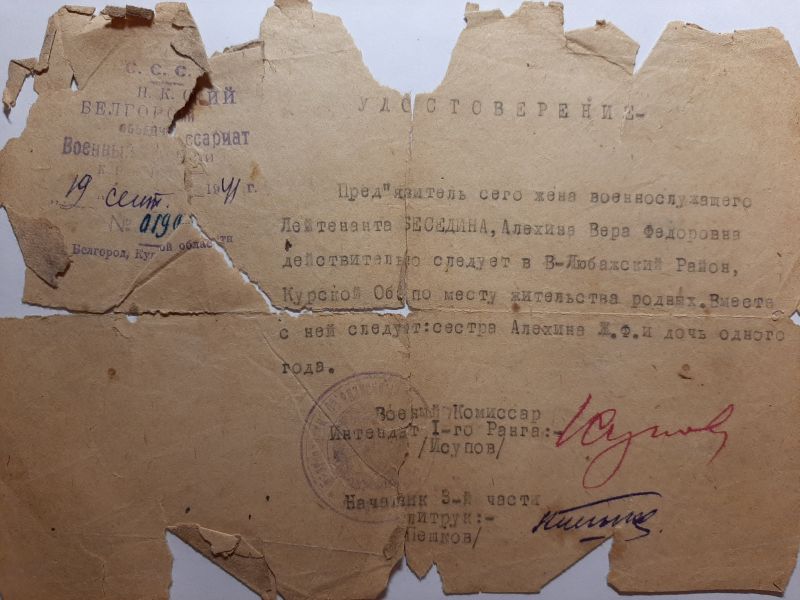 С. С. С.
Н. К.
БЕЛГОРОДСКИЙ
Военный
19 сент. 1941 г.
№ 0190
Белгород, Ку ой области
УДОСТОВЕРЕНИЕ-
Пред"язитель сего жена военнослужащего
Лейтенанта БЕСЕДИНА, Алехина Вера Федоровна
действительно следует в В-Любажский Район,
Курской Об по месту жительства родных. Вместе
с ней следует: сестра Алехина Ж.Ф. и дочь одного
года.
Военный Комиссар
Интендат I-го Ранга:-
/Исупов/
Начальник 3-й части
литрук:-
Пешков/